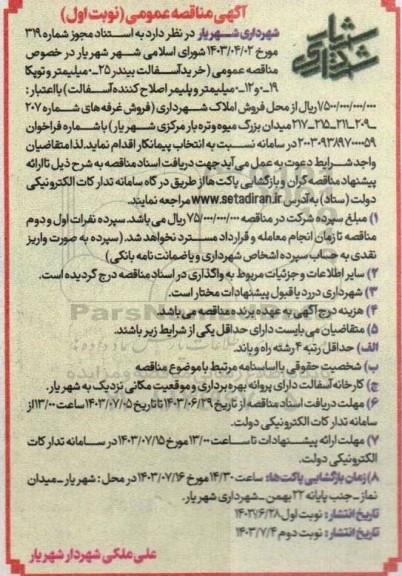 آگهی مناقصه عمومی (نوبت اول)
شهرداری شهریار در نظر دارد به استناد مجوز شماره ۳۱۹
مورخ ۱۴۰۳/۰۴/۰۲ شورای اسلامی شهر شهریار در خصوص
مناقصه عمومی (خرید آسفالت بیندر ۲۵_۰ میلیمتر و توپکا
۱۹_۰ و ۱۲_۰ میلیمتر و پلیمر اصلاح کننده آسفالت) با اعتبار:
۷۵۰۰/۰۰۰/۰۰۰/۰۰۰ ریال از محل فروش املاک شهرداری (فروش غرفه های شماره ۲۰۷
_۲۰۹_۲۱۱_۲۱۵_۲۱۷ میدان بزرگ میوه و تره بار مرکزی شهریار) با شماره فراخوان
۲۰۰۳۰۹۳۸۹۷۰۰۰۰۵۹ در سامانه نسبت به انتخاب پیمانکار اقدام نماید. لذا متقاضیان
واجد شرایط دعوت به عمل می آید جهت دریافت اسناد مناقصه به شرح ذیل تا ارائه
پیشنهاد مناقصه گران و بازگشایی پاکت ها از طریق درگاه سامانه تدارکات الکترونیکی
دولت (ستاد) به آدرس www.setadiran.ir مراجعه نمایند.
۱) مبلغ سپرده شرکت در مناقصه ۷۵/۰۰۰/۰۰۰/۰۰۰ ریال می باشد. سپرده نفرات اول و دوم
مناقصه تا زمان انجام معامله و قرارداد مسترد نخواهد شد. (سپرده به صورت واریز
نقدی به حساب سپرده اشخاص شهرداری و یا ضمانت نامه بانکی)
۲) سایر اطلاعات و جزئیات مربوط به واگذاری در اسناد مناقصه درج گردیده است.
۳) شهرداری در رد یا قبول پیشنهادات مختار است.
۴) هزینه درج آگهی به عهده برنده مناقصه می باشد.
۵) متقاضیان می بایست دارای حداقل یکی از شرایط زیر باشند.
الف) حداقل رتبه ۴ رشته راه و باند.
ب) شخصیت حقوقی با اساسنامه مرتبط با موضوع مناقصه
ج) کارخانه آسفالت دارای پروانه بهره برداری و موقعیت مکانی نزدیک به شهریار.
۶) مهلت دریافت اسناد مناقصه از تاریخ ۱۴۰۳/۰۶/۲۹ تا تاریخ ۱۴۰۳/۰۷/۰۵ ساعت ۱۳/۰۰ از
سامانه تدارکات الکترونیکی دولت.
۷) مهلت ارائه پیشنهادات تا ساعت ۱۳/۰۰ مورخ ۱۴۰۳/۰۷/۱۵ در سامانه تدارکات
الکترونیکی دولت.
۸) زمان بازگشایی پاکت ها: ساعت ۱۴/۳۰ مورخ ۱۴۰۳/۰۷/۱۶ در محل : شهریار _ میدان
نماز _ جنب پایانه ۲۲ بهمن _ شهرداری شهریار.
تاریخ انتشار : نوبت اول ۱۴۰۳/۶/۲۸
تاریخ انتشار : نوبت دوم ۱۴۰۳/۷/۴
علی ملکی شهردار شهریار